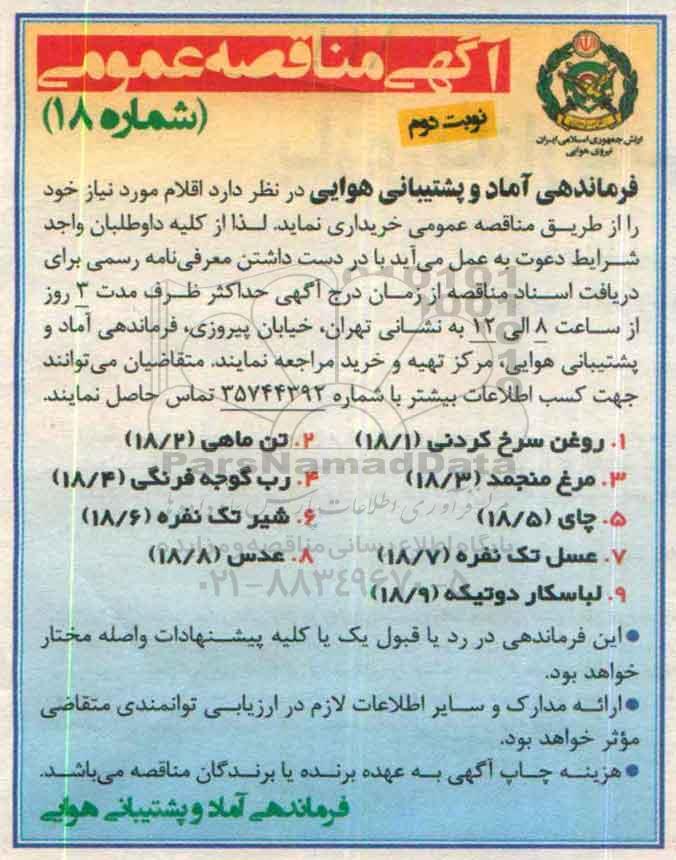 آگهی مناقصه عمومی
(شماره ۱۸)
نوبت دوم
ارتش جمهوری اسلامی ایران
نیروی هوایی
فرماندهی آماد و پشتیبانی هوایی در نظر دارد اقلام مورد نیاز خود
را از طریق مناقصه عمومی خریداری نماید. لذا از کلیه داوطلبان واجد
شرایط دعوت به عمل می‌آید با در دست داشتن معرفی‌نامه رسمی برای
دریافت اسناد مناقصه از زمان درج آگهی حداکثر ظرف مدت ۳ روز
از ساعت ۸ الی ۱۲ به نشانی تهران، خیابان پیروزی، فرماندهی آماد و
پشتیبانی هوایی، مرکز تهیه و خرید مراجعه نمایند. متقاضیان می‌توانند
جهت کسب اطلاعات بیشتر با شماره ۳۵۷۴۴۳۹۲ تماس حاصل نمایند.
۱. روغن سرخ کردنی (۱۸/۱) ۲. تن ماهی (۱۸/۲)
ParsNamadData
۳. مرغ منجمد (۱۸/۳) ۴. رب گوجه فرنگی (۱۸/۴)
۵. چای (۱۸/۵) ۶. شیر تک نفره (۱۸/۶)
پایگاه اطلاع رسانی مناقصه و مزایده
۷. عسل تک نفره (۱۸/۷) ۸. عدس (۱۸/۸)
۰۲۱-۸۸۳۴۹۶۷۰-۵
۹. لباسکار دوتیکه (۱۸/۹)
● این فرماندهی در رد یا قبول یک یا کلیه پیشنهادات واصله مختار
خواهد بود.
● ارائه مدارک و سایر اطلاعات لازم در ارزیابی توانمندی متقاضی
مؤثر خواهد بود.
● هزینه چاپ آگهی به عهده برنده یا برندگان مناقصه می‌باشد.
فرماندهی آماد و پشتیبانی هوایی